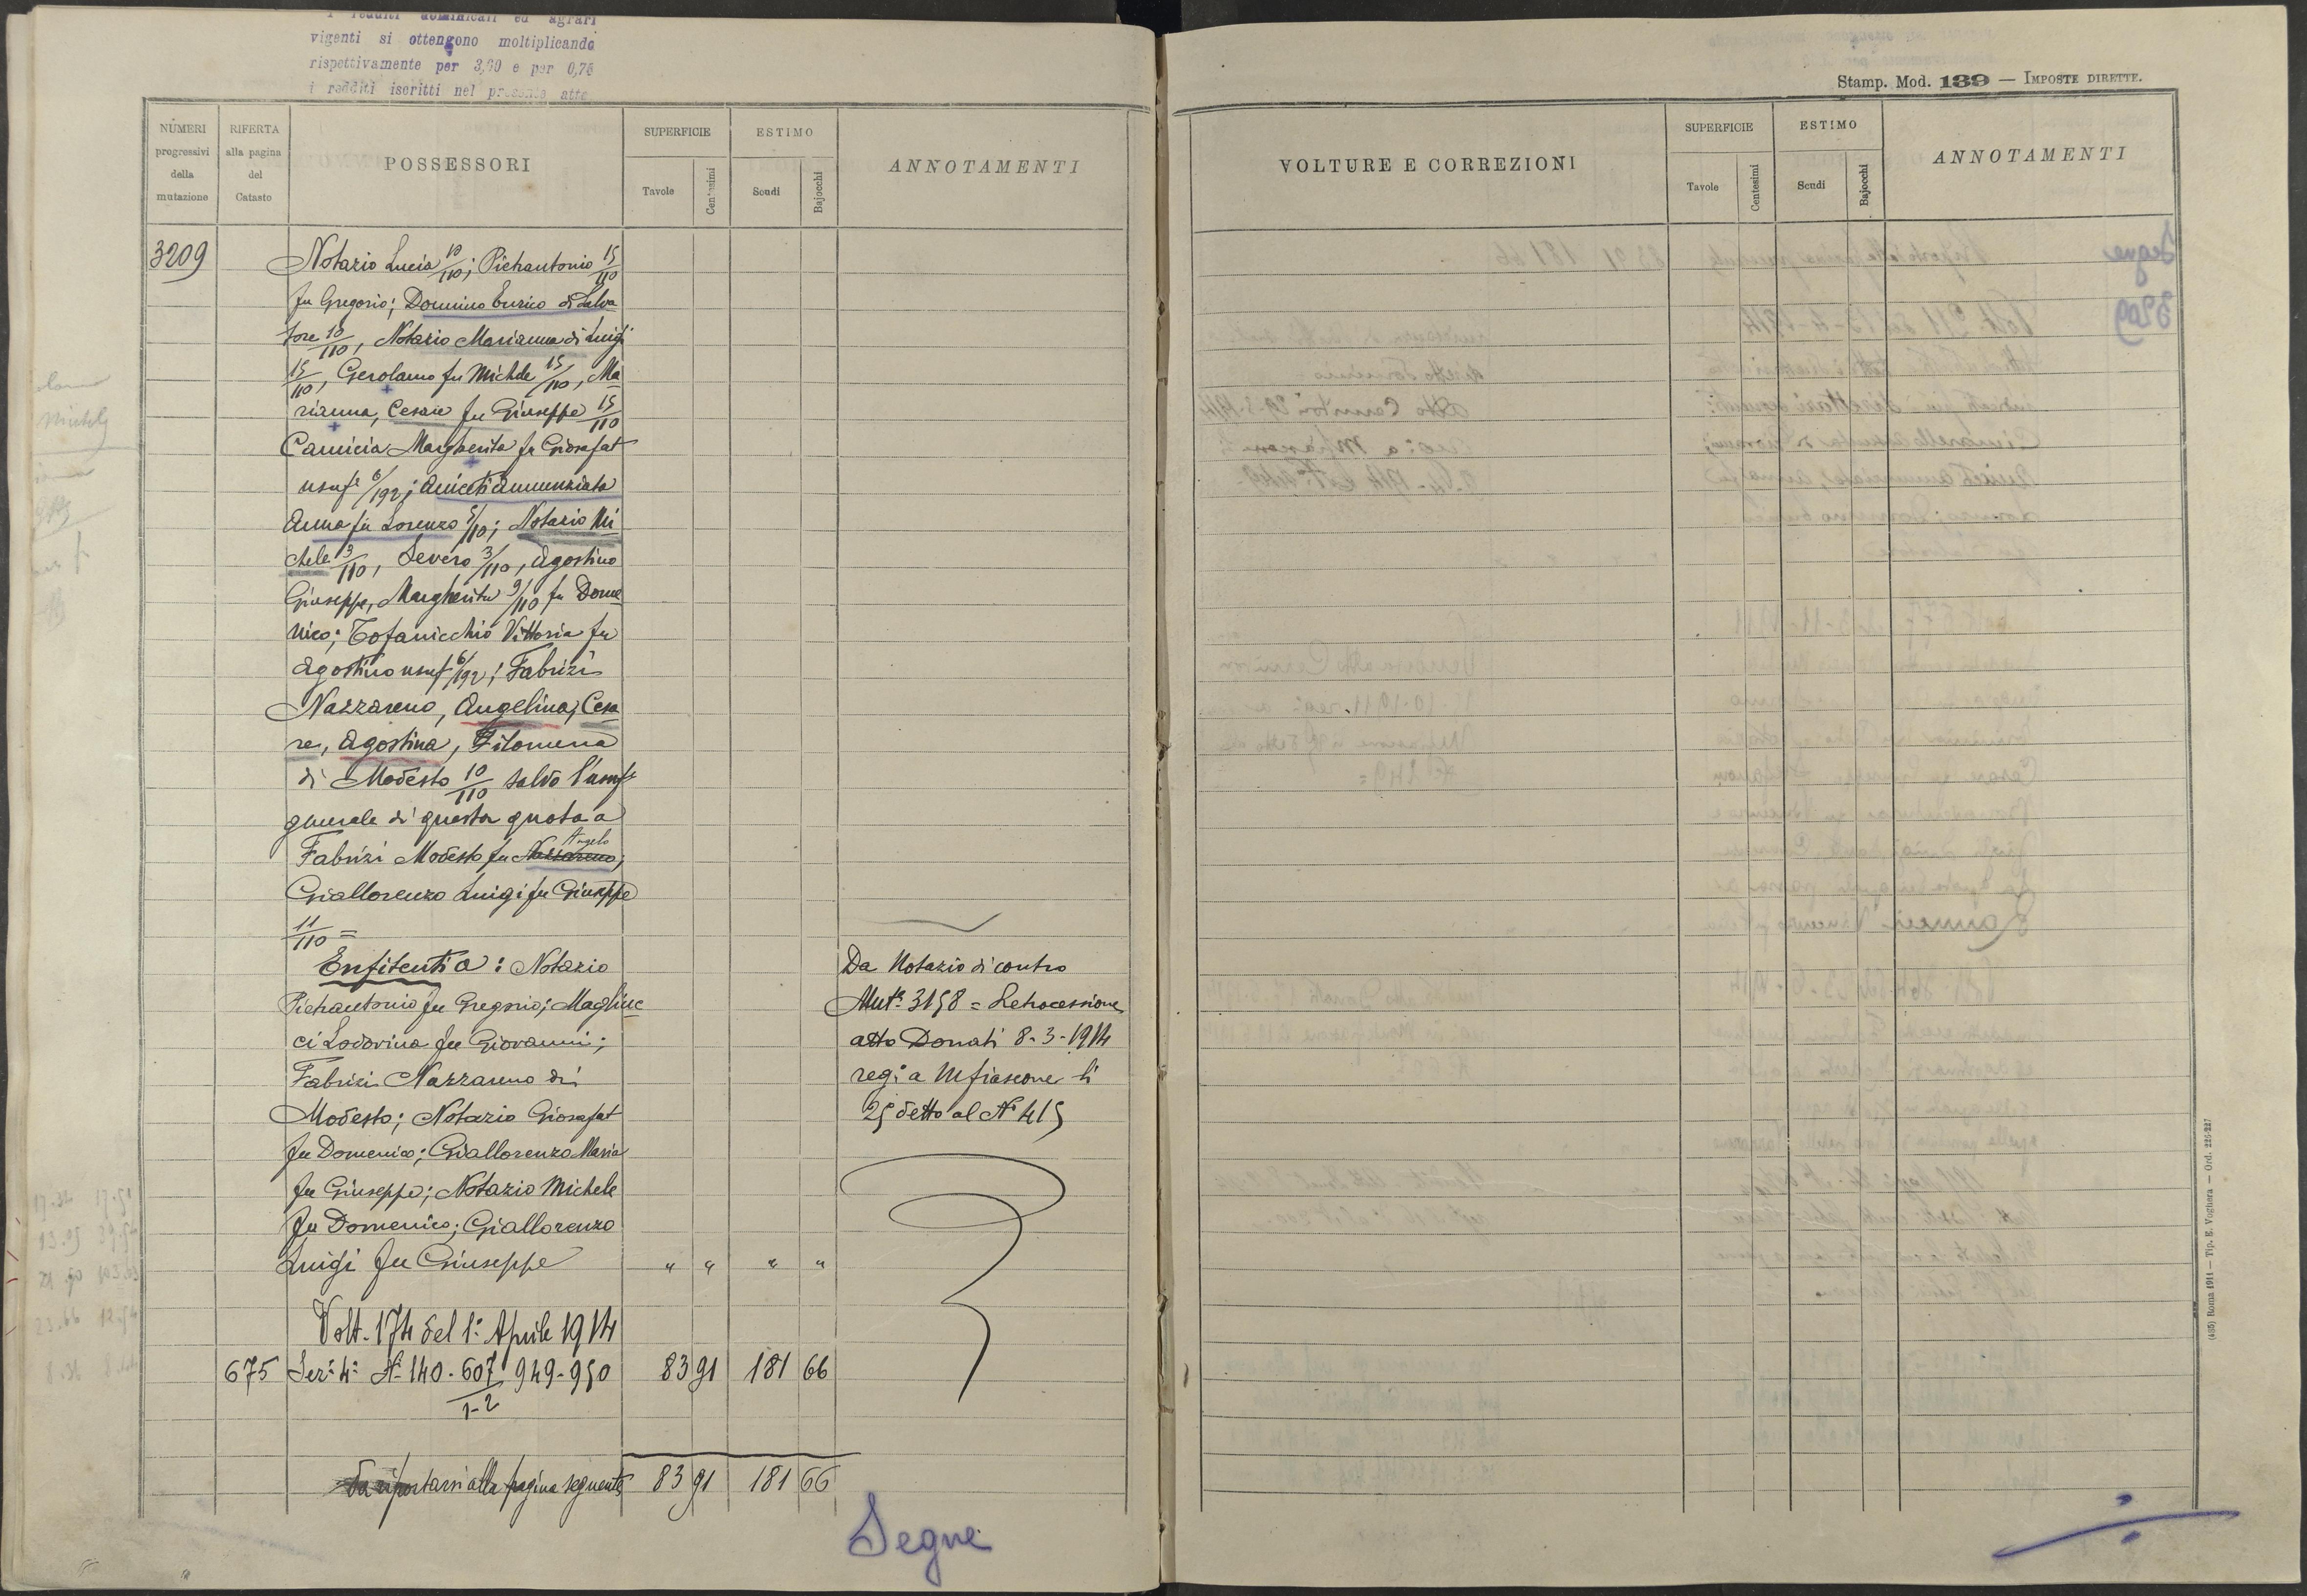 i redditi dominicali ed agrari
vigenti si ottengono moltiplicando
rispettivamente per 3,60 e per 0,75
i redditi iscritti nel presente atto
NUMERI progressivi della mutazione
RIFERTA alla pagina del Catasto
POSSESSORI
SUPERFICIE
Tavole
Centesimi
ESTIMO
Scudi
Bajocchi
ANNOTAMENTI
3209
Notazio Lucia 10/110; Pietrantonio 15/110
fu Gregorio; Domino Enrico di Salva
tore 10/110, Notazio Marianna di Luigi
15/110, Gerolamo fu Michele 15/110, Ma
rianna, Cesare fu Giuseppe 15/110
Camicia Margherita fu Giosafat
usuf. 6/192; Aniceti Annunziata
Anna fu Lorenzo 5/110; Notazio Mi
chele 3/110, Severo 3/110, Agostino
Giuseppe, Margherita 9/110 fu Dome
nico; Tofanicchio Vittoria fu
Agostino usuf 6/192; Fabrizi
Nazzareno, Angelina, Cesa
re, Agostina, Filomena
di Modesto 10/110 salvo l'usuf
generale di questa quota a
Angelo
Fabrizi Modesto fu Nazzareno;
Giallorenzo Luigi fu Giuseppe
11/110 =
Enfiteuti a: Notazio
Pietrantonio fu Gregorio; Magliuc
ci Lodovina fu Giovanni;
Fabrizi Nazzareno di
Modesto; Notazio Giosafat
fu Domenico; Giallorenzo Maria
fu Giuseppe; Notazio Michele
fu Domenico; Giallorenzo
Luigi fu Giuseppe " " " "
Da Notazio di contro
Mut.e 3158 = Retrocessione
atto Donati 8-3-1914
reg: a Mfiascone li
25 detto al No 415
Volt. 174 del 1: Aprile 1914
675 Sez: 4: No 140 . 607 949-950 83 91 181 66
1-2
Da riportarsi alla pagina seguente 83 91 181 66
Segue
Stamp. Mod. 139 — IMPOSTE DIRETTE.
VOLTURE E CORREZIONI
SUPERFICIE
Tavole
Centesimi
ESTIMO
Scudi
Bajocchi
ANNOTAMENTI
(485) Roma 1911 — Tip. E. Voghera — Ord. 225-227